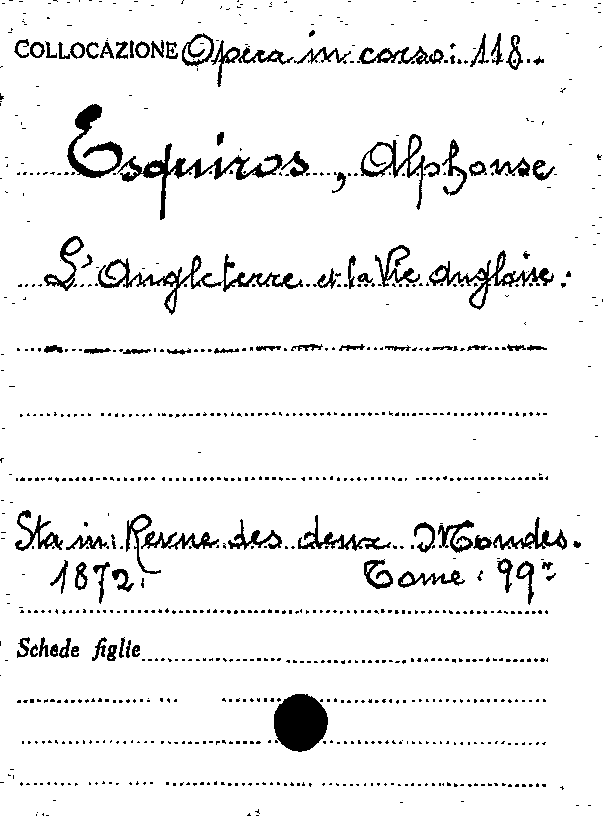 COLLOCAZIONE Opera in corso: 118.
Esquiros, Alphonse
L'Angleterre et la Vie anglaise.
Sta in: Revue des deux Mondes.
1872. Tome: 99°
Schede figlie